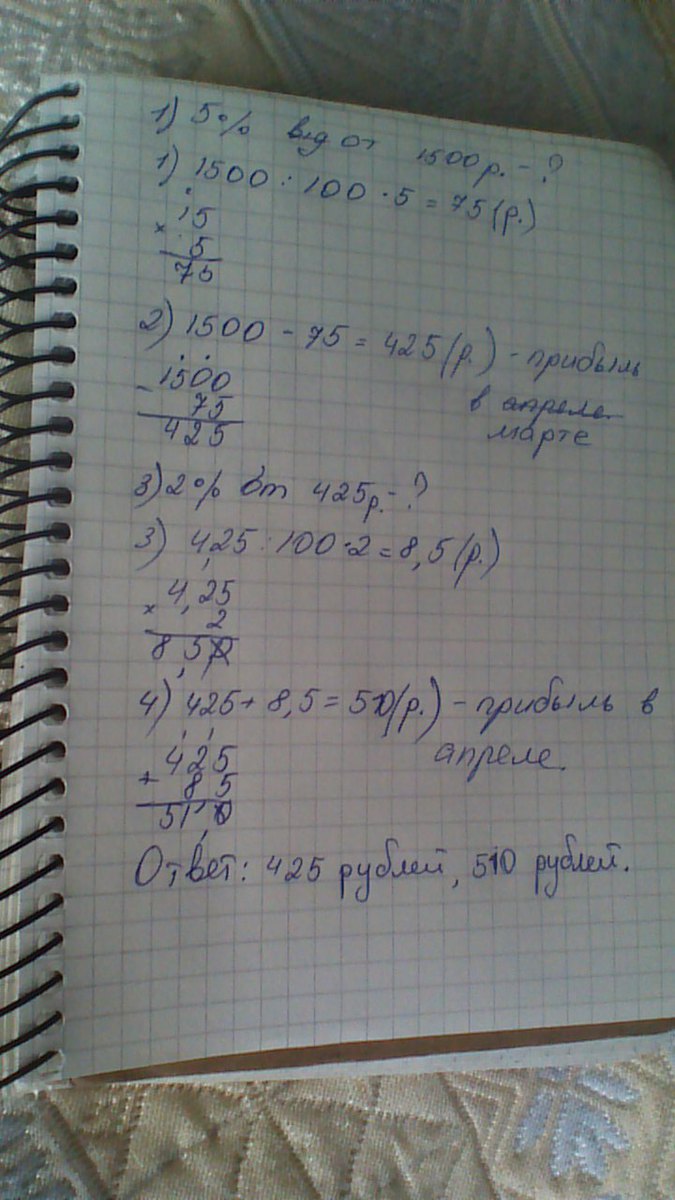 1) 5% от 1500р. - ?
1) 1500 : 100 · 5 = 75 (р.)
× 15
5
75
2) 1500 - 75 = 425 (р.) - прибыль
в апреле
марте
- 1500
75
425
3) 2% от 425р. - ?
3) 4,25 : 100 · 2 = 8,5 (р.)
× 4,25
2
8,50
4) 425 + 8,5 = 510 (р.) - прибыль в
апреле.
+ 425
85
510
Ответ: 425 рублей, 510 рублей.